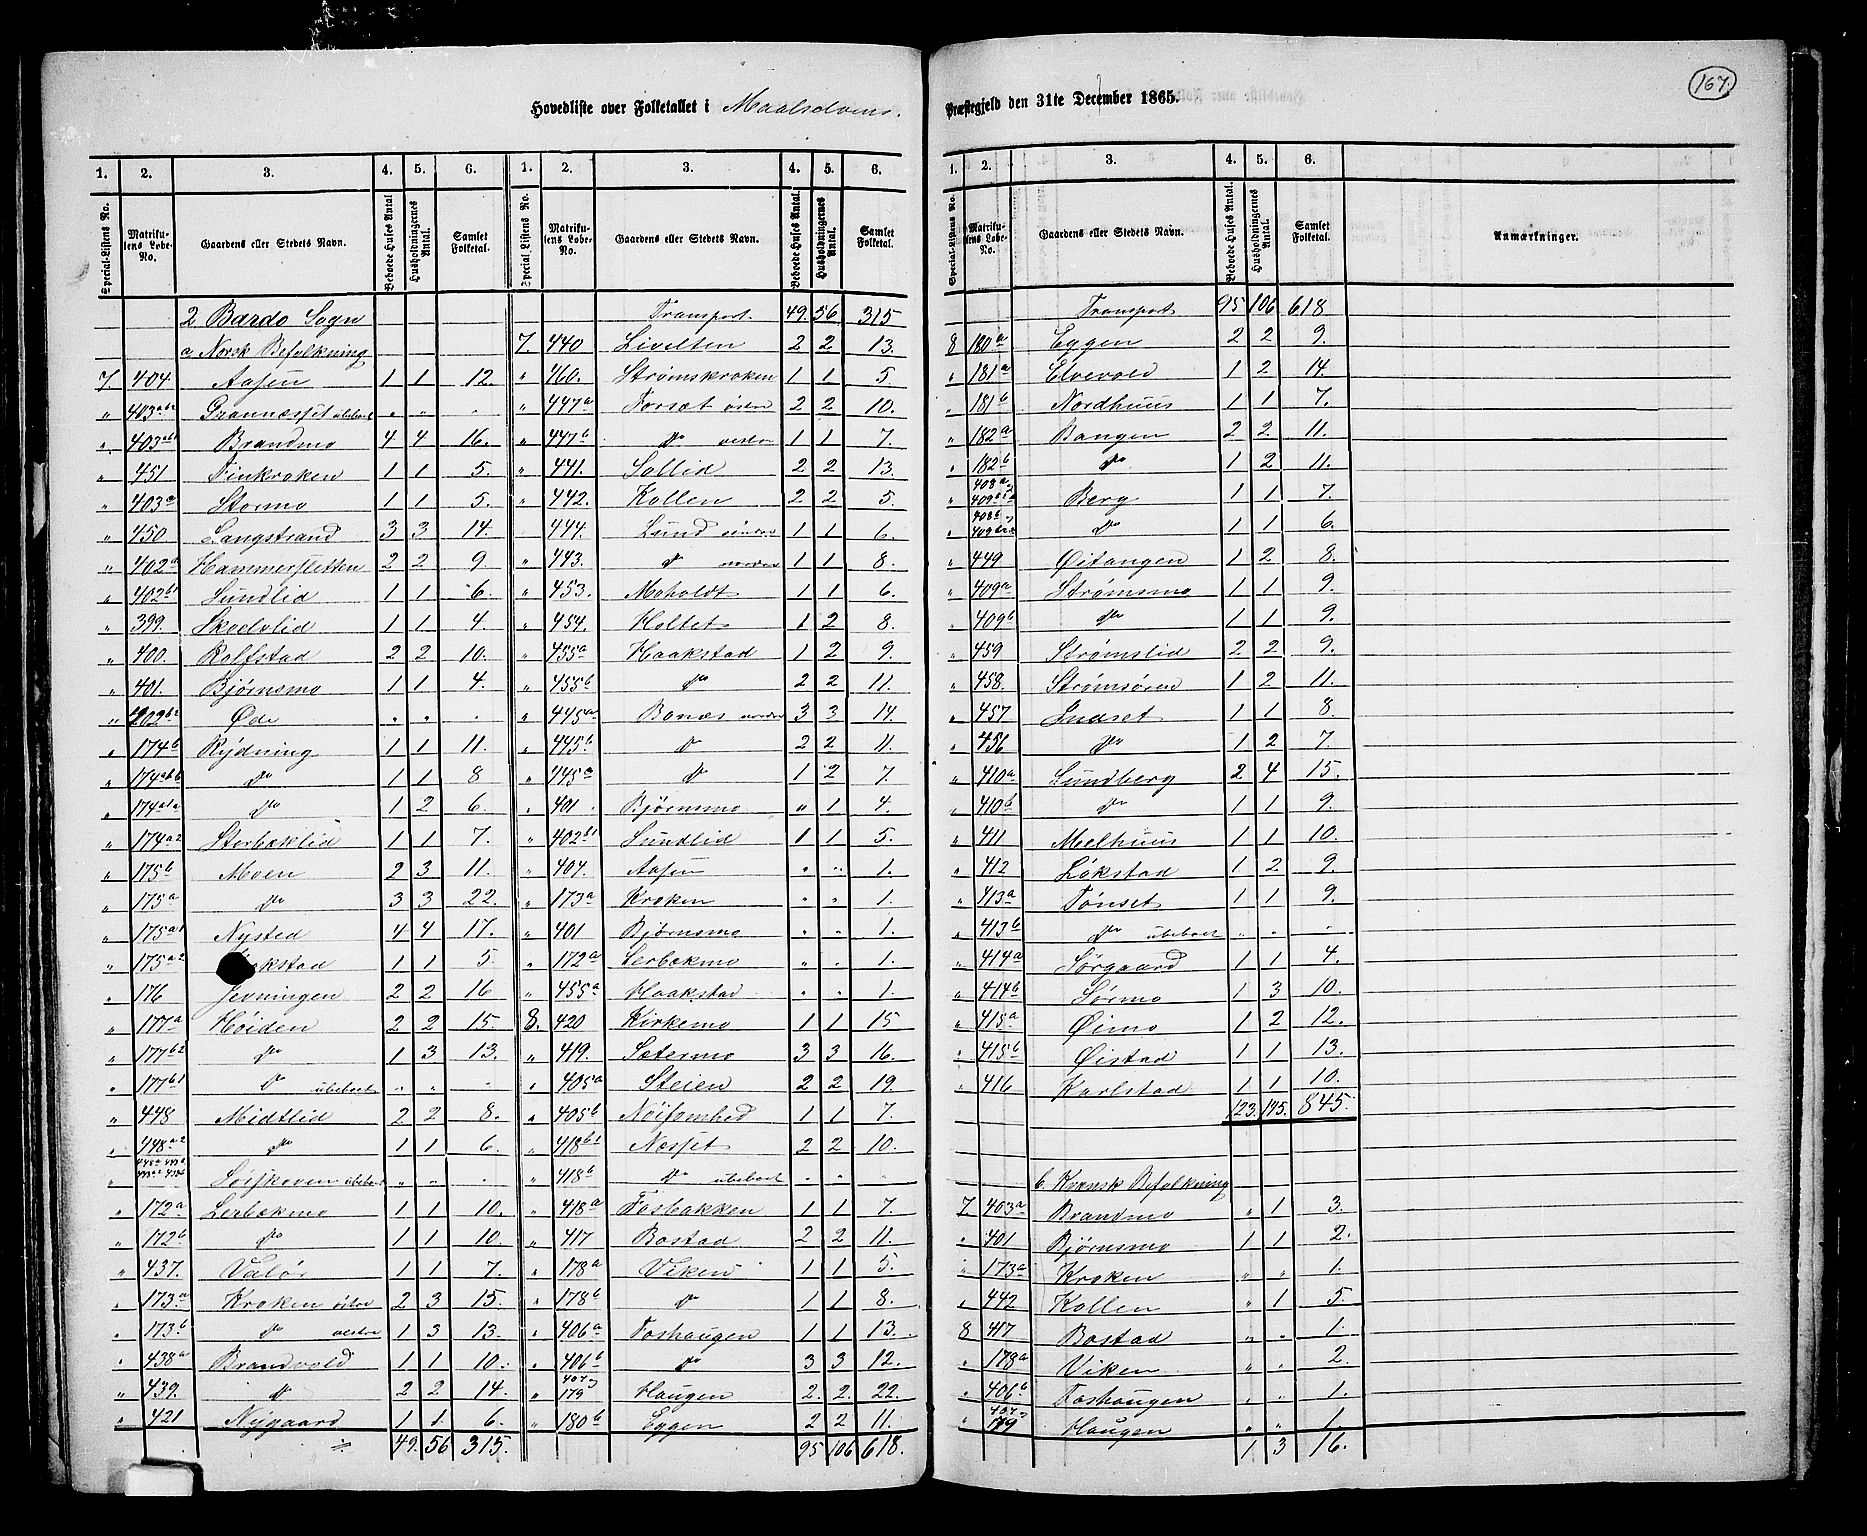 167.
Hovedliste over Folketallet i Maalselvens Præstegjeld den 31te December 1865.
1. 2. 3. 4. 5. 6. 1. 2. 3. 4. 5. 6.
Special-Listens No. Matrikulens Løbe-No. Gaardens eller Stedets Navn. Beboede Huses Antal Husholdningernes Antal. Samlet Folketal. Special Listens No. Matrikulens Løbe-No. Gaardens eller Stedets Navn. Beboede Huses Antal. Husholdningernes Antal. Samlet Folketal.
2 Bardo Sogn Transport. 49. 56 315
a Norsk Befolkning 7. 440 Livelten 2 2 13.
7. 404. Aasen 1 1 12. " 460. Strømskroken 1 1 5
" 403ab2 Grannæsset ubeboet " " . " 447a Forsæt østre 2 2 10.
" 403ab1 Brandmo 4 4 16. " 447b do vestre 1 1 7.
" 451 Finkroken 1 1 5. " 441. Sollid 2 2 13.
" 403a Stormo 1 1 5. " 442. Kollen 2 2 5.
" 450 Langstrand 3 3 14. 444. Lund søndre 1 1 6.
" 402a Hammersletten 2 2 9 " 443. do nordre 1 1 8.
" 402b1 Sundlid 1 1 6. " 453. Moholdt 1 1 6.
" 399. Skoelvlid 1 1 4. " 454. Holtet 1 2 8.
" 400. Rolfstad 2 2 10. " 455a Haakstad 1 2 9.
" 401. Bjørnsmo 1 1 4. " 455b do 2 2 11.
" 202b2 Øde . . . " 445a Bonæs nordre 3 3 14.
" 174b Rydning 1 1 11. " 445b do 2 2 11.
" 174ab do 1 1 8 " 445a do 1 2 7.
" 174a1a do 1 2 6. " 401. Bjørnsmo " 1 4.
" 174a2 Storbæklid 1 1 7. " 402b1 Sundlid 1 1 5.
" 175b Moen 2 3 11. " 404. Aasen " " 1.
" 175a do 3 3 22. " 173a Kroken " " 1.
" 175a1 Nysted 4 4 17. " 401 Bjørnsmo " " 1.
" 175a2 kstad 1 1 5. " 172a Lerbækmo " " 1.
" 176 Jevningen 2 2 16 " 455a Haakstad " " 1.
" 177a Høiden 2 2 15. 8. 420 Kirkemo 1 1 15
" 177b2 do 1 3 13. " 419. Sætermo 3 3 16.
" 177b1 do ubeboet " " . " 405a Steien 2 2 19.
" 448 Midtlid 2 2 8. " 405b Nøisomhed 1 1 7.
" 448a2 do 1 1 6. " 418b1 Næsset 2 2 10.
" Sørskoven ubeboet " " " 418b do ubeboet " " "
" 172a Lerbækmo 1 1 10. " 418a Fosbakken 1 1 7.
" 172b do 1 1 10. " 417 Bostad 2 2 11.
" 437. Valør 1 1 7. " 178a Viken 1 1 5.
" 173a Kroken østre 2 3 15. " 178b do 1 1 8.
" 173b do vestre 1 3 13. " 406a Foshaugen 1 1 13.
" 438a Brandvold 1 1 10. " 406b do 3 3 12.
" 439. do 2 2 14. " 407, 179 Haugen 2. 2. 22.
" 421 Nygaard 1 1 6. " 180b Eggen 2 2 11.
49. 56 315. 95 106 618.
1. 2. 3. 4. 5. 6.
Special-Listens No. Matrikulens Løbe-No. Gaardens eller Stedets Navn. Beboede Huses Antal. Husholdningernes Antal. Samlet Folketal. Anmærkninger.
Transport 95 106 618
8 180a Eggen 2 2 9.
" 181a Elvevold 1 2 14.
" 181b Nordhuus 1 1 7.
" 182a Bangen 2 2 11.
" 182b do 1 2 11.
" 408a 409 Berg 1 1 7.
" 408b 409 do 1 1 6.
" 449 Øitangen 1 2 8.
" 409a Strømsmo 1 1 9.
" 409b do 1 1 9.
" 459 Strømslid 2 2 9.
" 458. Strømsøren 1 2 11.
" 457 Indset 1 1 8.
" 456 do 1 2 7.
" 410a Lundberg 2 4 15.
" 410b do 1 1 9.
" 411 Melhuus 1 1 10.
" 412 Løkstad 1 2 9.
" 413a Tønset 1 1 9.
" 413b do ubeboet " " "
" 414a Sørgaard 1 1 4.
" 414b Sørmo 1 3 10.
" 415a Øimo 1 2 12.
" 415b Øistad 1 1 13.
" 416 Karlstad 1 1 10.
123. 145. 845.
b. Kvænsk Befolkning
7. 403a Brandmo " 1 3.
" 401 Bjørnsmo 1 1 2.
" 173a Kroken " " 1.
" 442 Kollen " 1 5.
8 417 Bostad " " 1.
" 178a Viken " " 2.
" 406b Foshaugen " " 1.
" 407, 179 Haugen " " 1.
1 3 16.